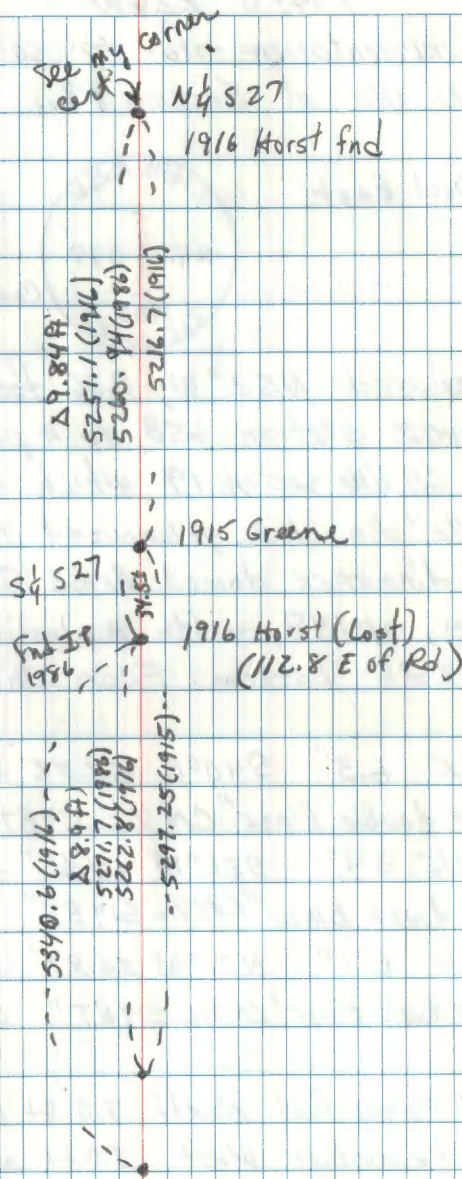 See my corner
cert.
N¼ S27
1916 Horst fnd
Δ 9.84 ft
5251.1 (1916)
5260.94 (1986)
5216.7 (1916)
1915 Greene
S¼ S27
34.55
Fnd IP
1986
1916 Horst (Lost)
(112.8 E of Rd)
5340.6 (1916)
Δ 8.9 ft
5271.7 (1986)
5262.8 (1916)
5297.25 (1915)